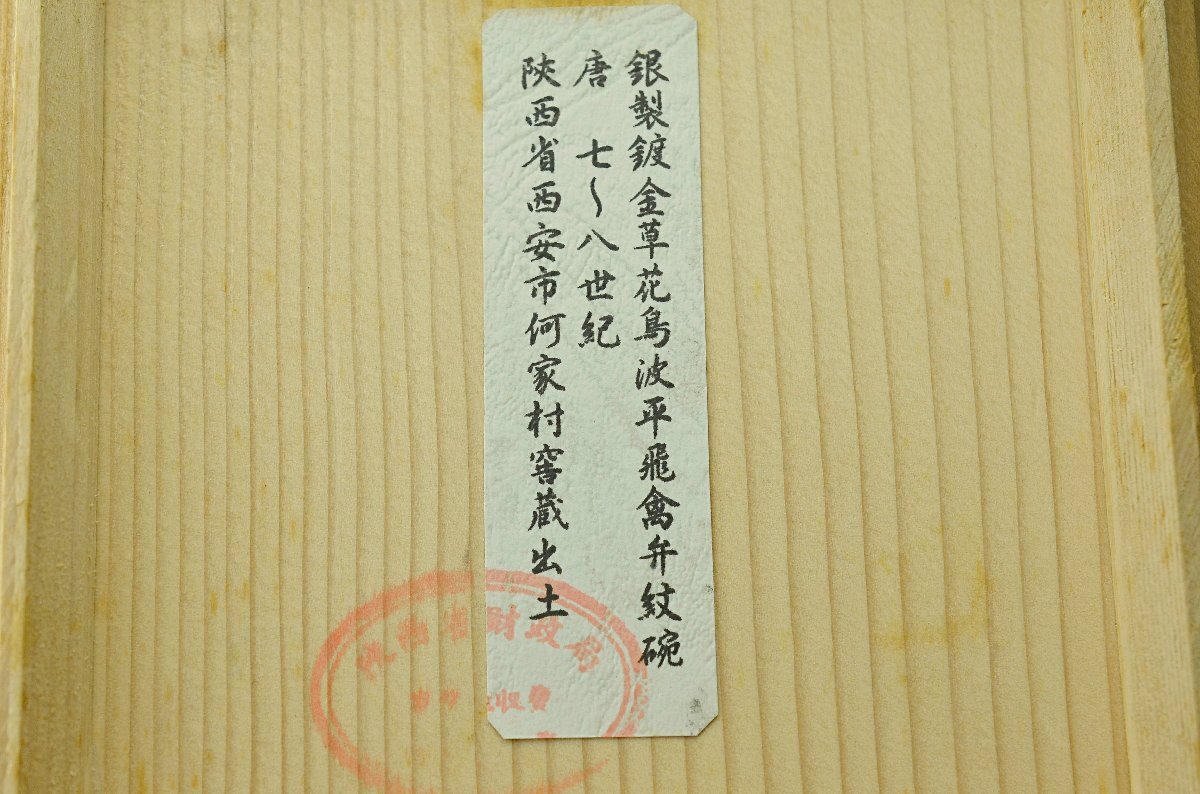 銀製鍍金草花鳥波平飛禽弁紋碗
唐 七～八世紀
陝西省西安市何家村窖蔵出土
財政局
收費